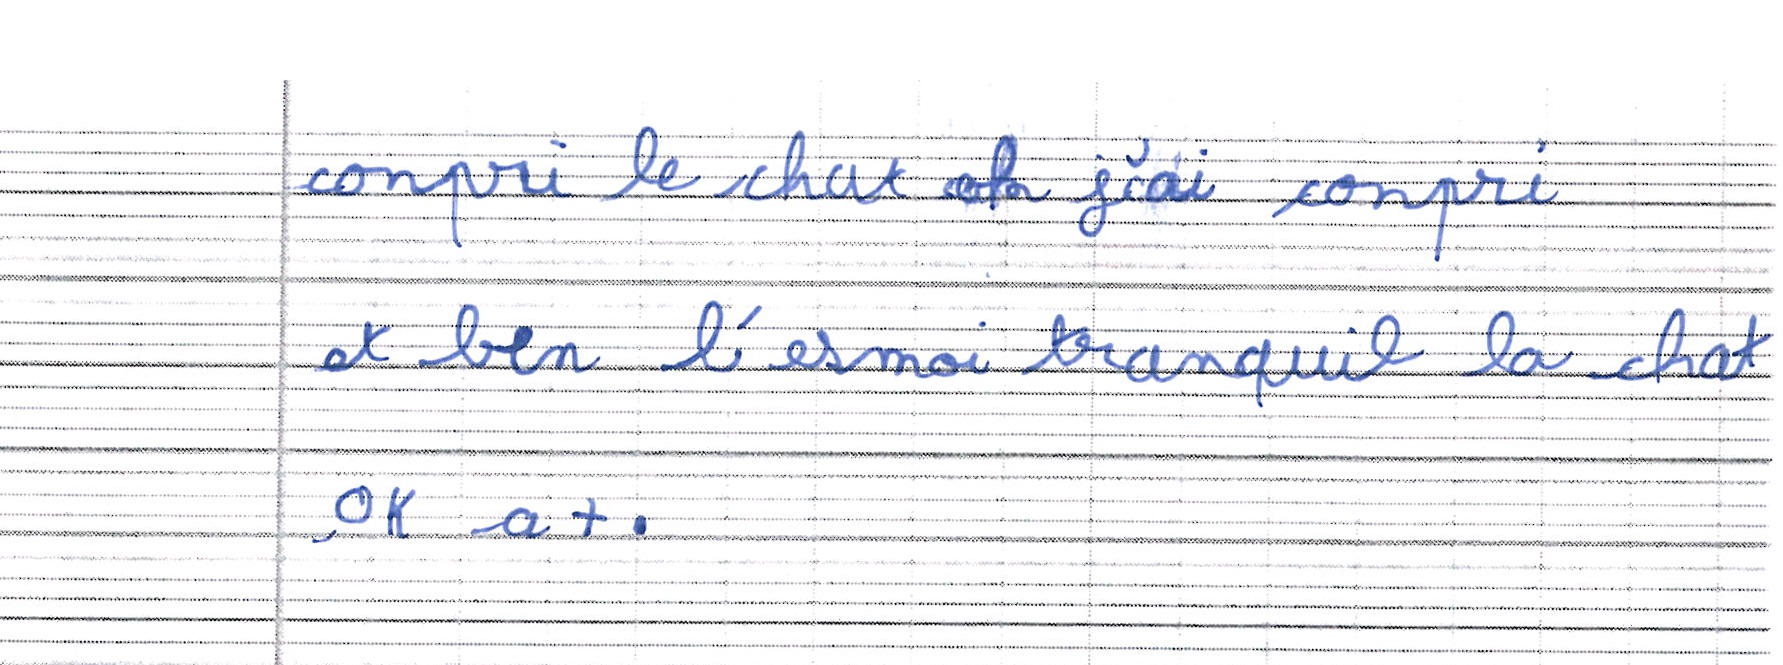 conpri le chat oh j'ai conpri
et ben l'esmoi tranquil la chat
OK a+.